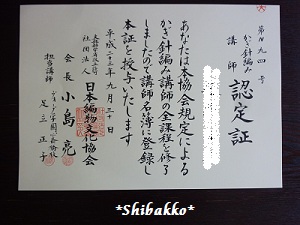 第N九四号
かぎ針編み
講師 認定証
あなたは本協会規定による
かぎ針編み講師の全課程を修了
しましたので講師名簿に登録し
本証を授与いたします
平成二十三年九月三十日
社団法人 日本編物文化協会
会長 小島 亮
担当講師
足立正子
*Shibakko*